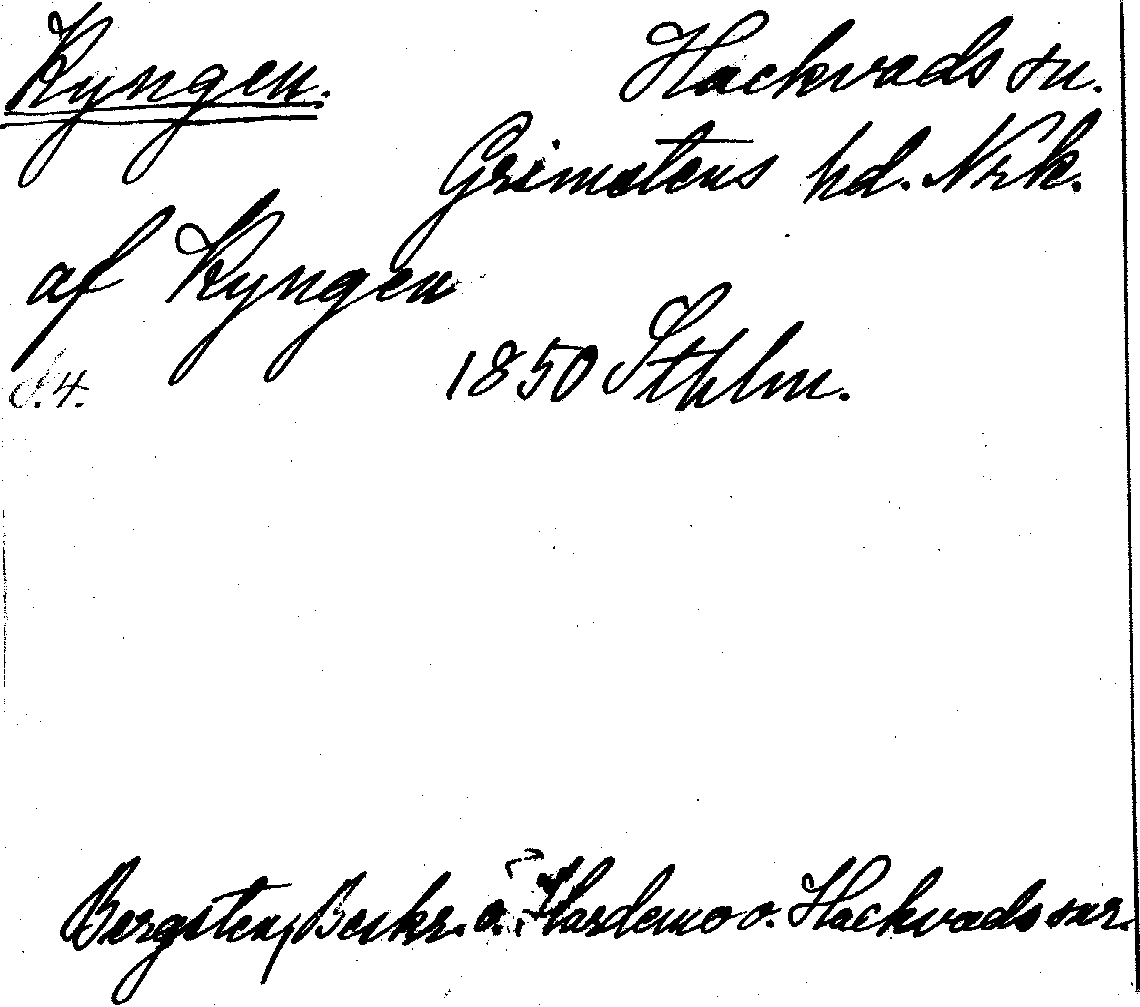 Kyngen. Hackvads sn.
Grimstens hd. Nrk.
af Kyngen
s. 4. 1850 Sthlm.
Bergsten, Beskr. o. Hardemo o. Hackvads snr.